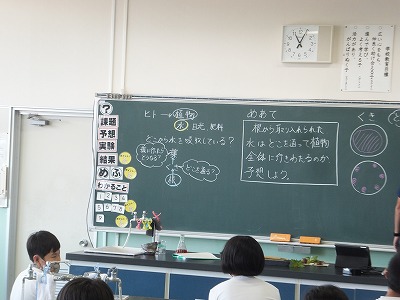 ?
課題
予想
実験
結果
めふ
わかること
1 2 3 4
5 6 7 8
9
ヒト → 植物
水 日光、肥料
どこから水を吸収している?
葉
根
どこを通る?
めあて
根から取り入れられた
水はどこを通って植物
全体に行きわたるのか
予想しよう。
くき
学校教育目標